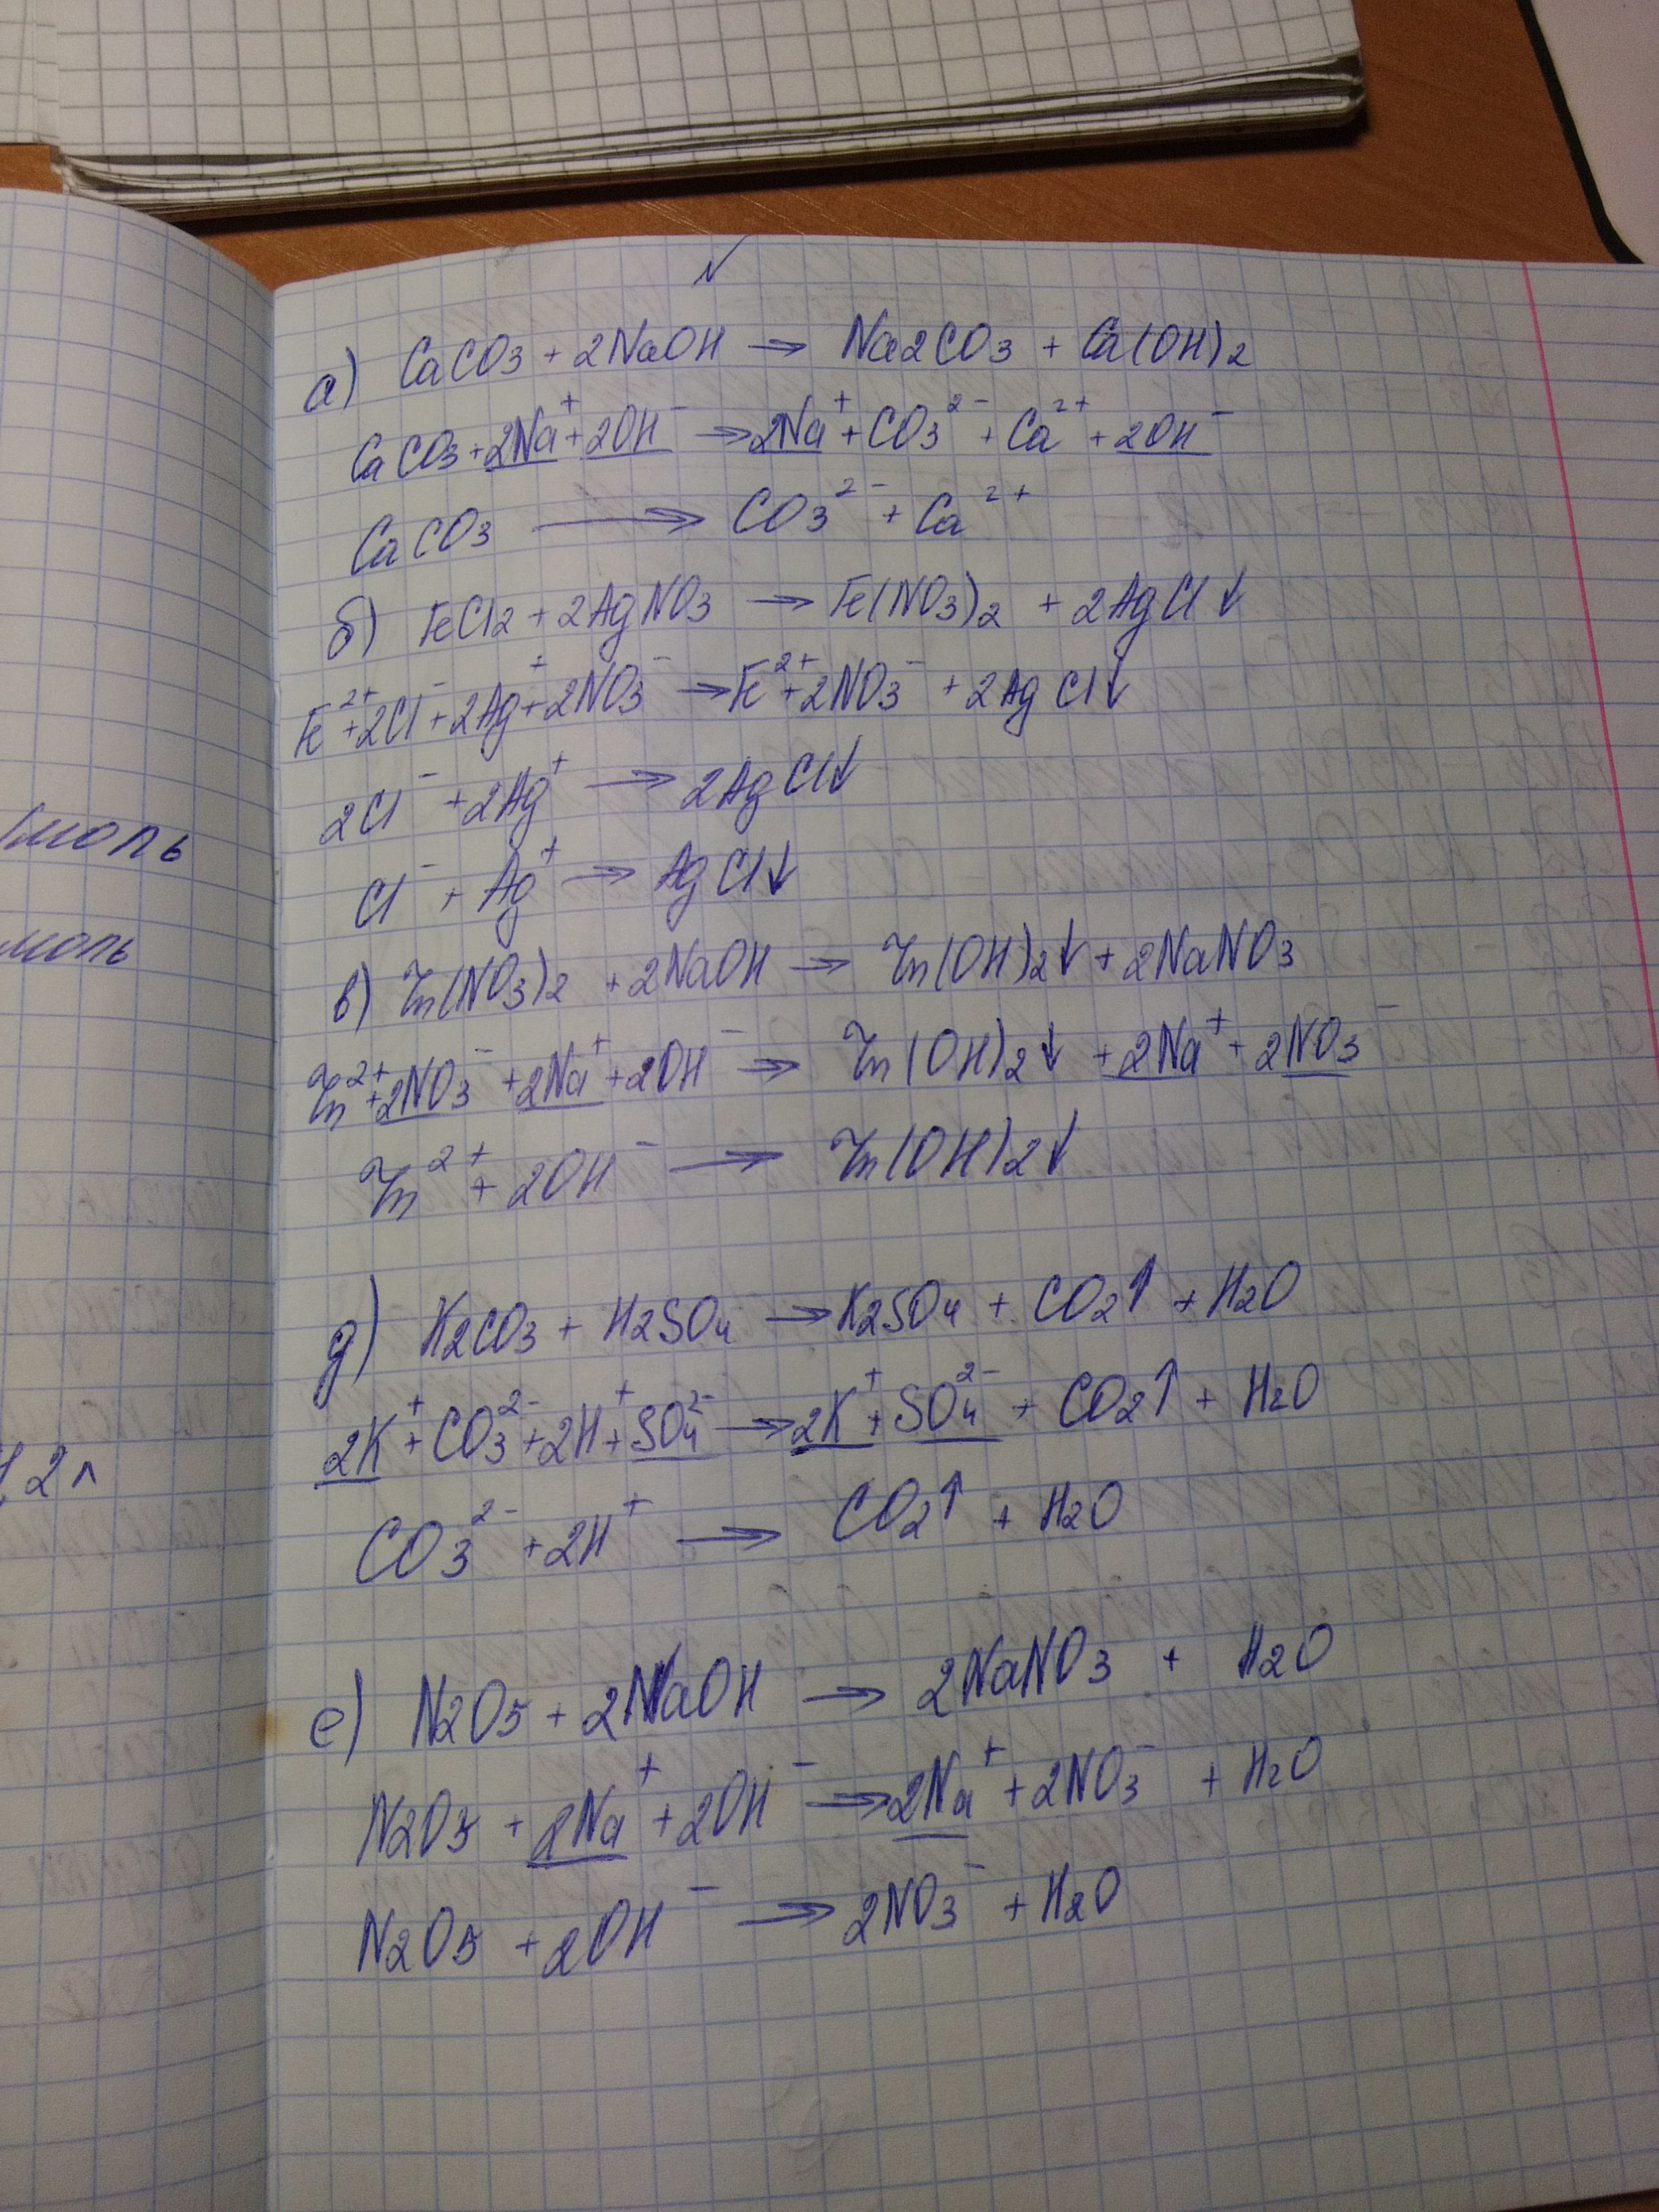 а) CaCO3 + 2NaOH → Na2CO3 + Ca(OH)2
CaCO3 + 2Na⁺ + 2OH⁻ → 2Na⁺ + CO3²⁻ + Ca²⁺ + 2OH⁻
CaCO3 → CO3²⁻ + Ca²⁺
б) FeCl2 + 2AgNO3 → Fe(NO3)2 + 2AgCl↓
Fe²⁺ + 2Cl⁻ + 2Ag⁺ + 2NO3⁻ → Fe²⁺ + 2NO3⁻ + 2AgCl↓
2Cl⁻ + 2Ag⁺ → 2AgCl↓
Cl⁻ + Ag⁺ → AgCl↓
в) Zn(NO3)2 + 2NaOH → Zn(OH)2↓ + 2NaNO3
Zn²⁺ + 2NO3⁻ + 2Na⁺ + 2OH⁻ → Zn(OH)2↓ + 2Na⁺ + 2NO3⁻
Zn²⁺ + 2OH⁻ → Zn(OH)2↓
д) K2CO3 + H2SO4 → K2SO4 + CO2↑ + H2O
2K⁺ + CO3²⁻ + 2H⁺ + SO4²⁻ → 2K⁺ + SO4²⁻ + CO2↑ + H2O
CO3²⁻ + 2H⁺ → CO2↑ + H2O
е) N2O5 + 2NaOH → 2NaNO3 + H2O
N2O5 + 2Na⁺ + 2OH⁻ → 2Na⁺ + 2NO3⁻ + H2O
N2O5 + 2OH⁻ → 2NO3⁻ + H2O
моль
моль
2л